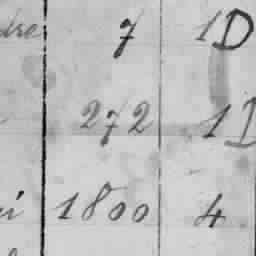 7 1D
272 1D
1800 4